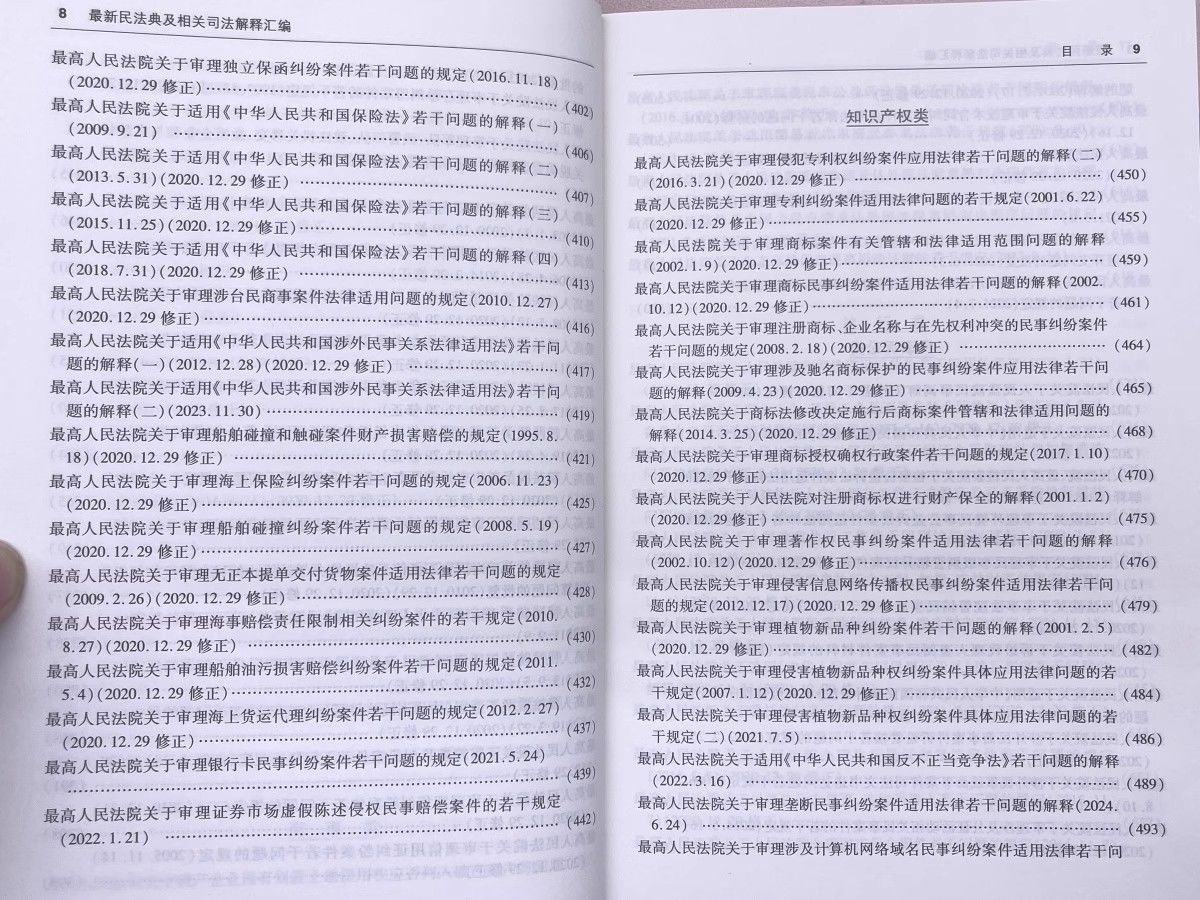 8 最新民法典及相关司法解释汇编
最高人民法院关于审理独立保函纠纷案件若干问题的规定(2016.11.18)
(2020.12.29 修正)……(402)
最高人民法院关于适用《中华人民共和国保险法》若干问题的解释(一)
(2009.9.21) ……(406)
最高人民法院关于适用《中华人民共和国保险法》若干问题的解释(二)
(2013.5.31)(2020.12.29 修正) ……(407)
最高人民法院关于适用《中华人民共和国保险法》若干问题的解释(三)
(2015.11.25)(2020.12.29 修正)……(410)
最高人民法院关于适用《中华人民共和国保险法》若干问题的解释(四)
(2018.7.31)(2020.12.29 修正) ……(413)
最高人民法院关于审理涉台民商事案件法律适用问题的规定(2010.12.27)
(2020.12.29 修正)……(416)
最高人民法院关于适用《中华人民共和国涉外民事关系法律适用法》若干问
题的解释(一)(2012.12.28)(2020.12.29 修正)……(417)
最高人民法院关于适用《中华人民共和国涉外民事关系法律适用法》若干问
题的解释(二)(2023.11.30)……(419)
最高人民法院关于审理船舶碰撞和触碰案件财产损害赔偿的规定(1995.8.
18)(2020.12.29 修正) ……(421)
最高人民法院关于审理海上保险纠纷案件若干问题的规定(2006.11.23)
(2020.12.29 修正)……(425)
最高人民法院关于审理船舶碰撞纠纷案件若干问题的规定(2008.5.19)
(2020.12.29 修正)……(427)
最高人民法院关于审理无正本提单交付货物案件适用法律若干问题的规定
(2009.2.26)(2020.12.29 修正) ……(428)
最高人民法院关于审理海事赔偿责任限制相关纠纷案件的若干规定(2010.
8.27)(2020.12.29 修正) ……(430)
最高人民法院关于审理船舶油污损害赔偿纠纷案件若干问题的规定(2011.
5.4)(2020.12.29 修正)……(432)
最高人民法院关于审理海上货运代理纠纷案件若干问题的规定(2012.2.27)
(2020.12.29 修正)……(437)
最高人民法院关于审理银行卡民事纠纷案件若干问题的规定(2021.5.24)
……(439)
最高人民法院关于审理证券市场虚假陈述侵权民事赔偿案件的若干规定
(2022.1.21) ……(442)
目 录 9
知识产权类
最高人民法院关于审理侵犯专利权纠纷案件应用法律若干问题的解释(二)
(2016.3.21)(2020.12.29 修正)……(450)
最高人民法院关于审理专利纠纷案件适用法律问题的若干规定(2001.6.22)
(2020.12.29 修正)……(455)
最高人民法院关于审理商标案件有关管辖和法律适用范围问题的解释
(2002.1.9)(2020.12.29 修正)……(459)
最高人民法院关于审理商标民事纠纷案件适用法律若干问题的解释(2002.
10.12)(2020.12.29 修正)……(461)
最高人民法院关于审理注册商标、企业名称与在先权利冲突的民事纠纷案件
若干问题的规定(2008.2.18)(2020.12.29 修正) ……(464)
最高人民法院关于审理涉及驰名商标保护的民事纠纷案件应用法律若干问
题的解释(2009.4.23)(2020.12.29 修正)……(465)
最高人民法院关于商标法修改决定施行后商标案件管辖和法律适用问题的
解释(2014.3.25)(2020.12.29 修正) ……(468)
最高人民法院关于审理商标授权确权行政案件若干问题的规定(2017.1.10)
(2020.12.29 修正)……(470)
最高人民法院关于人民法院对注册商标权进行财产保全的解释(2001.1.2)
(2020.12.29 修正)……(475)
最高人民法院关于审理著作权民事纠纷案件适用法律若干问题的解释
(2002.10.12)(2020.12.29 修正)……(476)
最高人民法院关于审理侵害信息网络传播权民事纠纷案件适用法律若干问
题的规定(2012.12.17)(2020.12.29 修正)……(479)
最高人民法院关于审理植物新品种纠纷案件若干问题的解释(2001.2.5)
(2020.12.29 修正)……(482)
最高人民法院关于审理侵害植物新品种权纠纷案件具体应用法律问题的若
干规定(2007.1.12)(2020.12.29 修正) ……(484)
最高人民法院关于审理侵害植物新品种权纠纷案件具体应用法律问题的若
干规定(二)(2021.7.5)……(486)
最高人民法院关于适用《中华人民共和国反不正当竞争法》若干问题的解释
(2022.3.16) ……(489)
最高人民法院关于审理垄断民事纠纷案件适用法律若干问题的解释(2024.
6.24) ……(493)
最高人民法院关于审理涉及计算机网络域名民事纠纷案件适用法律若干问